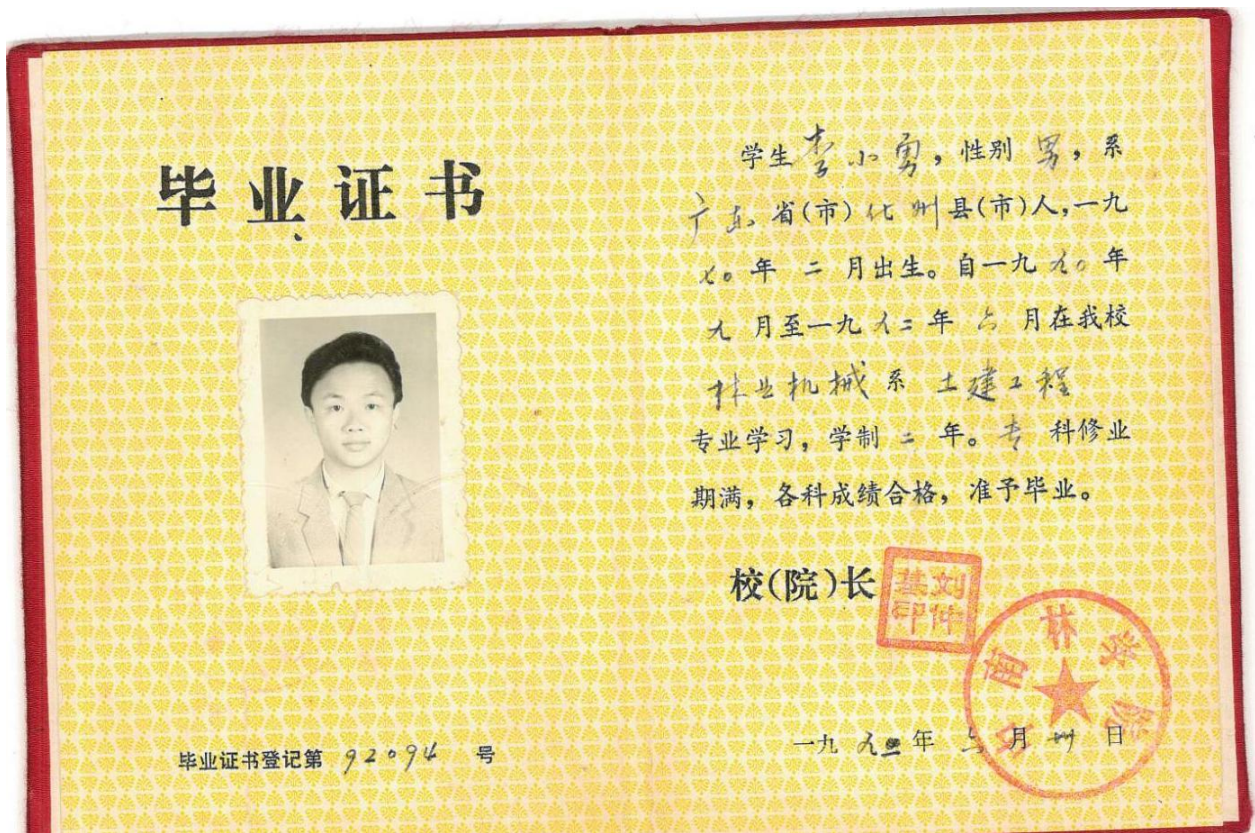 毕业证书
毕业证书登记第 92094 号
学生李小勇，性别 男，系
广东 省(市)化州县(市)人，一九
七〇年 二 月出生。自一九九〇年
九 月至一九九二年 六 月在我校
林业机械 系 土建工程
专业学习，学制 二 年。专 科修业
期满，各科成绩合格，准予毕业。
校(院)长
刘仲基印
林学院
一九九二年 六 月 卅 日